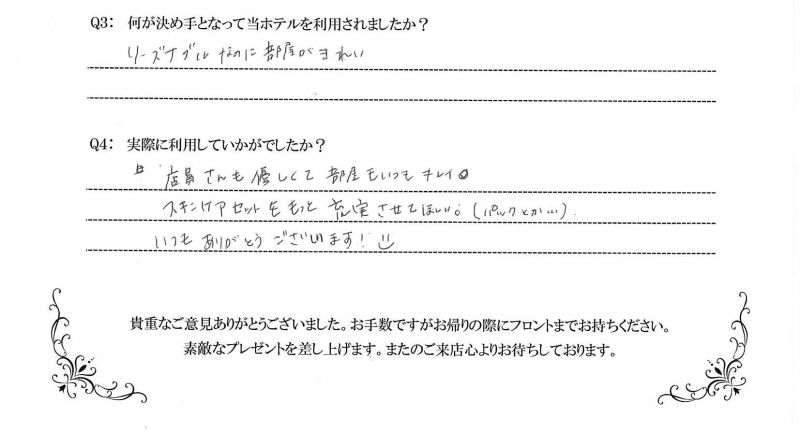 Q3： 何が決め手となって当ホテルを利用されましたか？
リーズナブルなのに部屋がきれい
Q4： 実際に利用していかがでしたか？
店員さんも優しくて部屋もいつもキレイ。
スキンケアセットをもっと充実させてほしい。(パックとか…)
いつもありがとうございます！
貴重なご意見ありがとうございました。お手数ですがお帰りの際にフロントまでお持ちください。
素敵なプレゼントを差し上げます。またのご来店心よりお待ちしております。